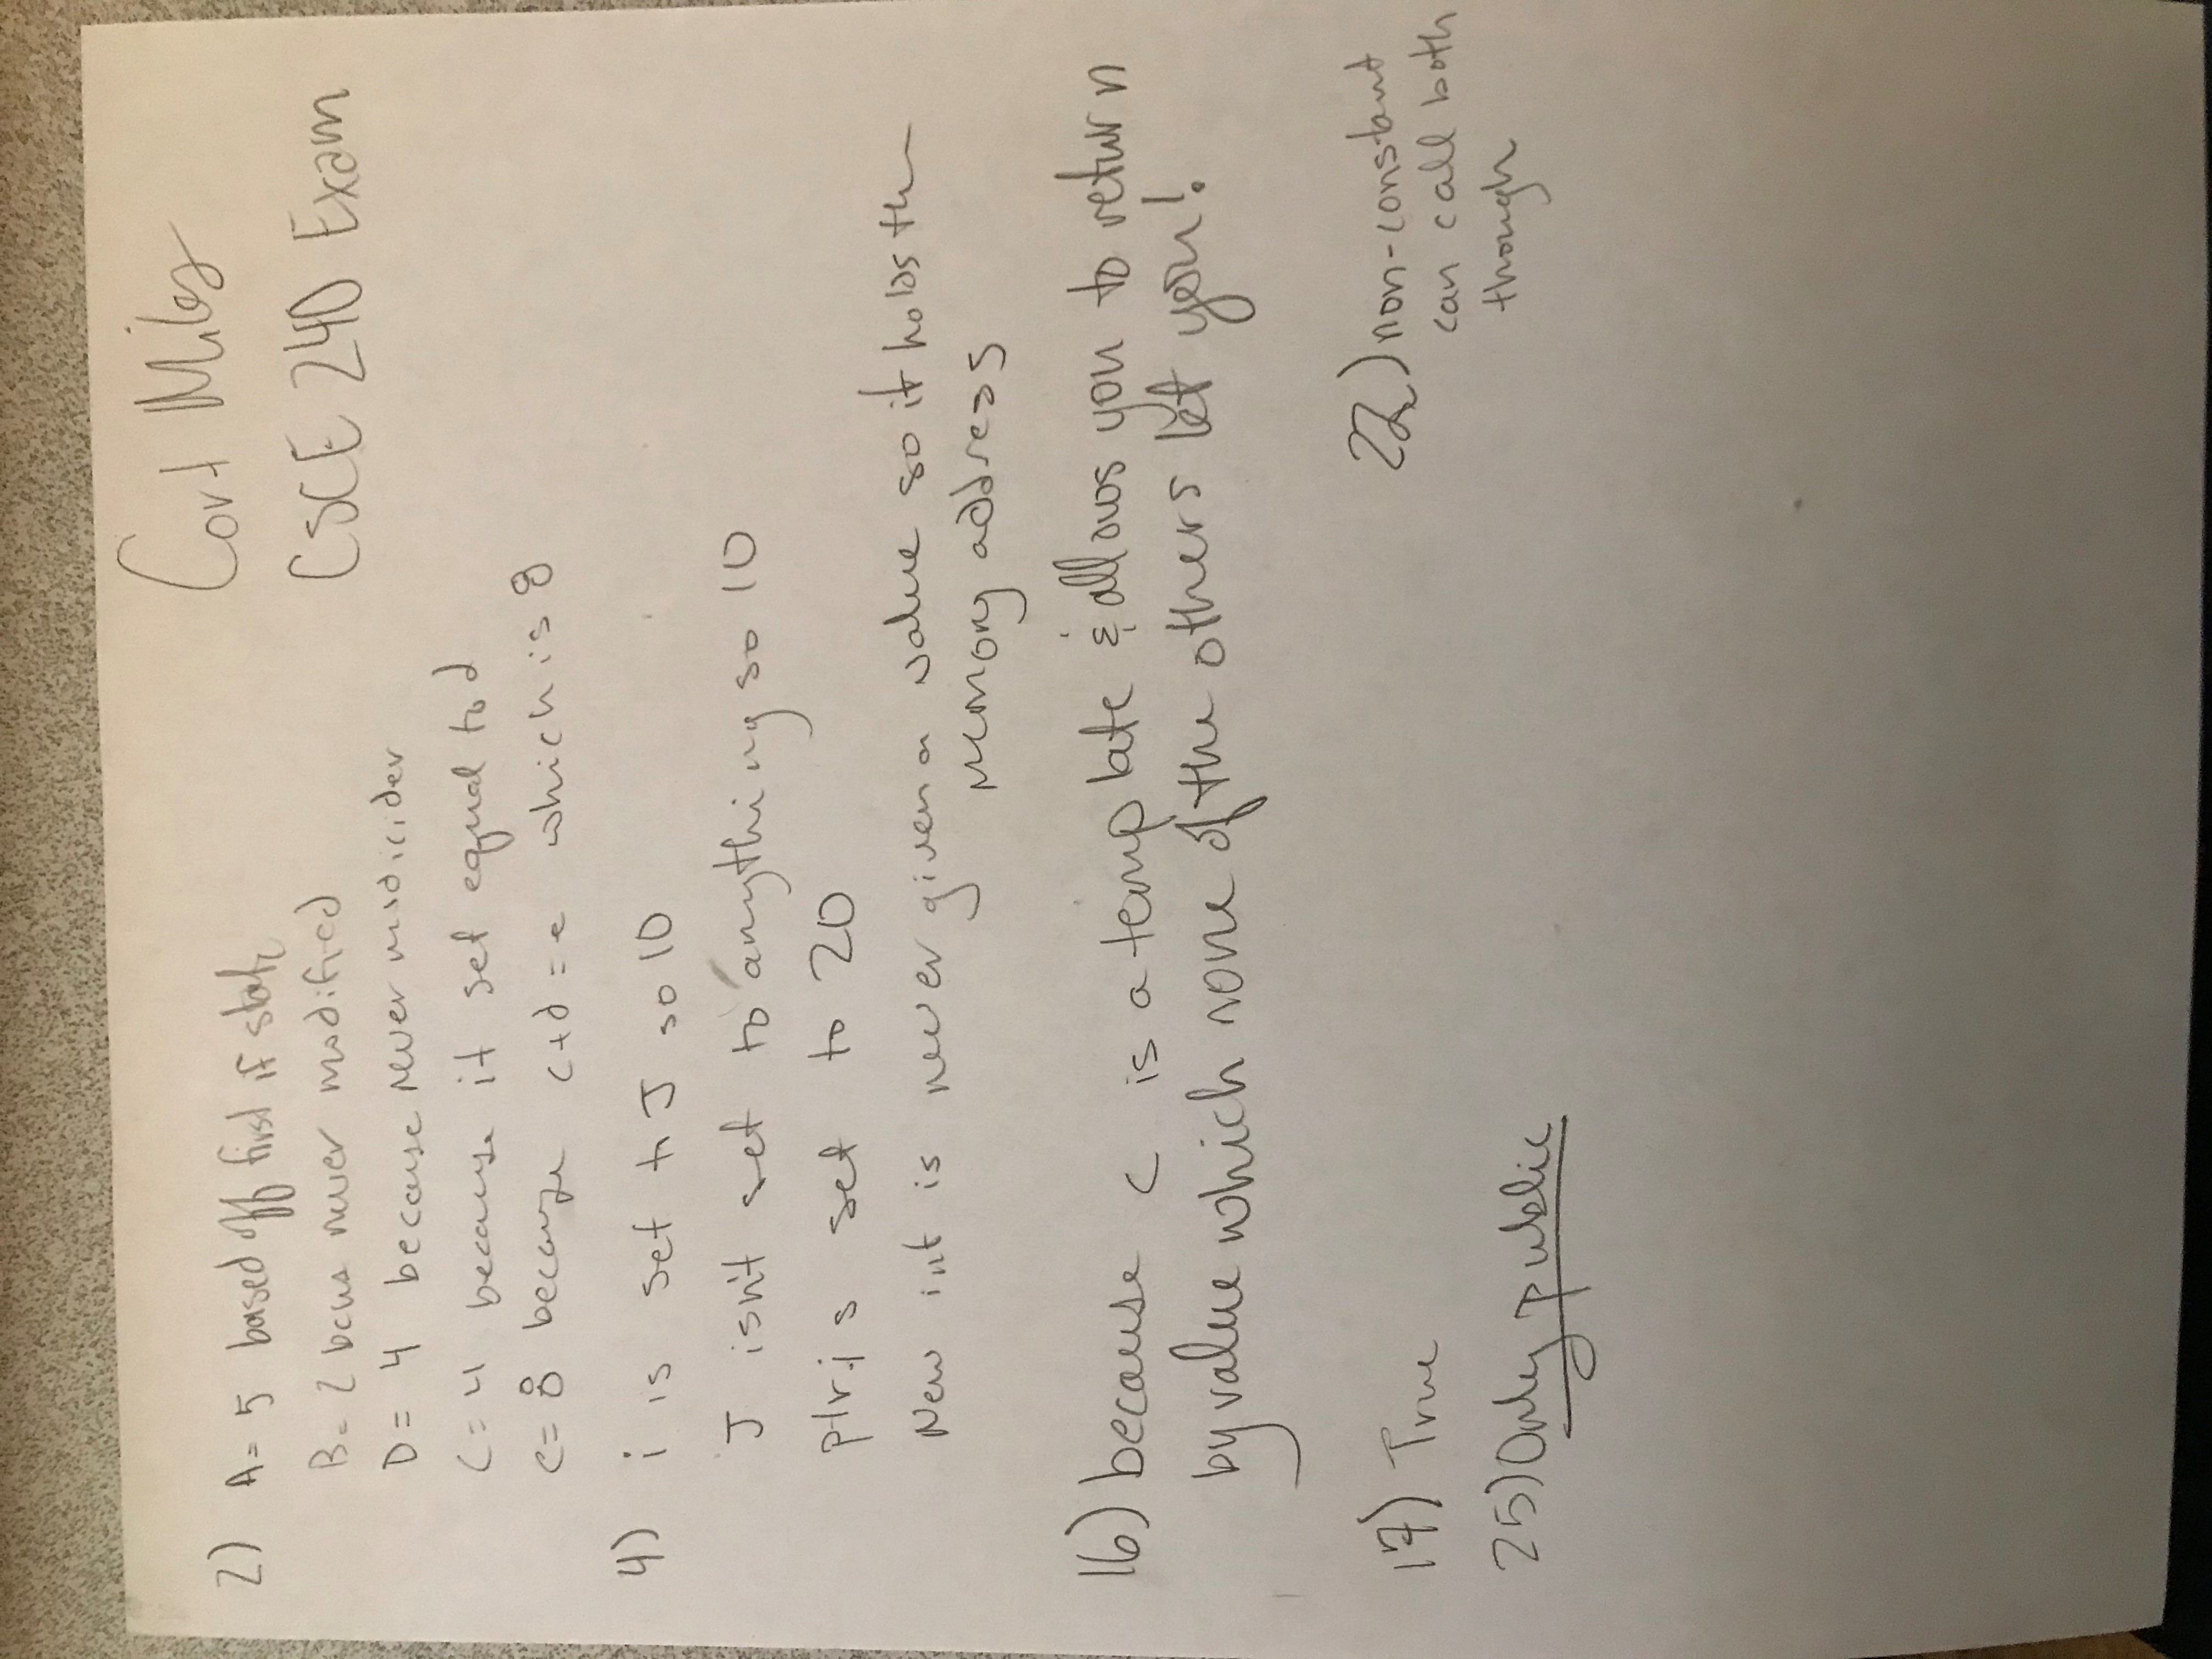 Cort Miles
CSCE 240 Exam
2) A= 5 based off first if state
B= 2 becus never modified
D= 4 because never modicider
C= 4 because it set equal to d
e= 8 because c+d=e which is 8
4) i is set to J so 10
J isnt set to anything so 10
ptr is set to 20
New int is never given a value so it holds the
memory address
16) because c is a template & allows you to return
by value which none of the others let you!
17) True
22) non-constant
can call both
though
25) Only public